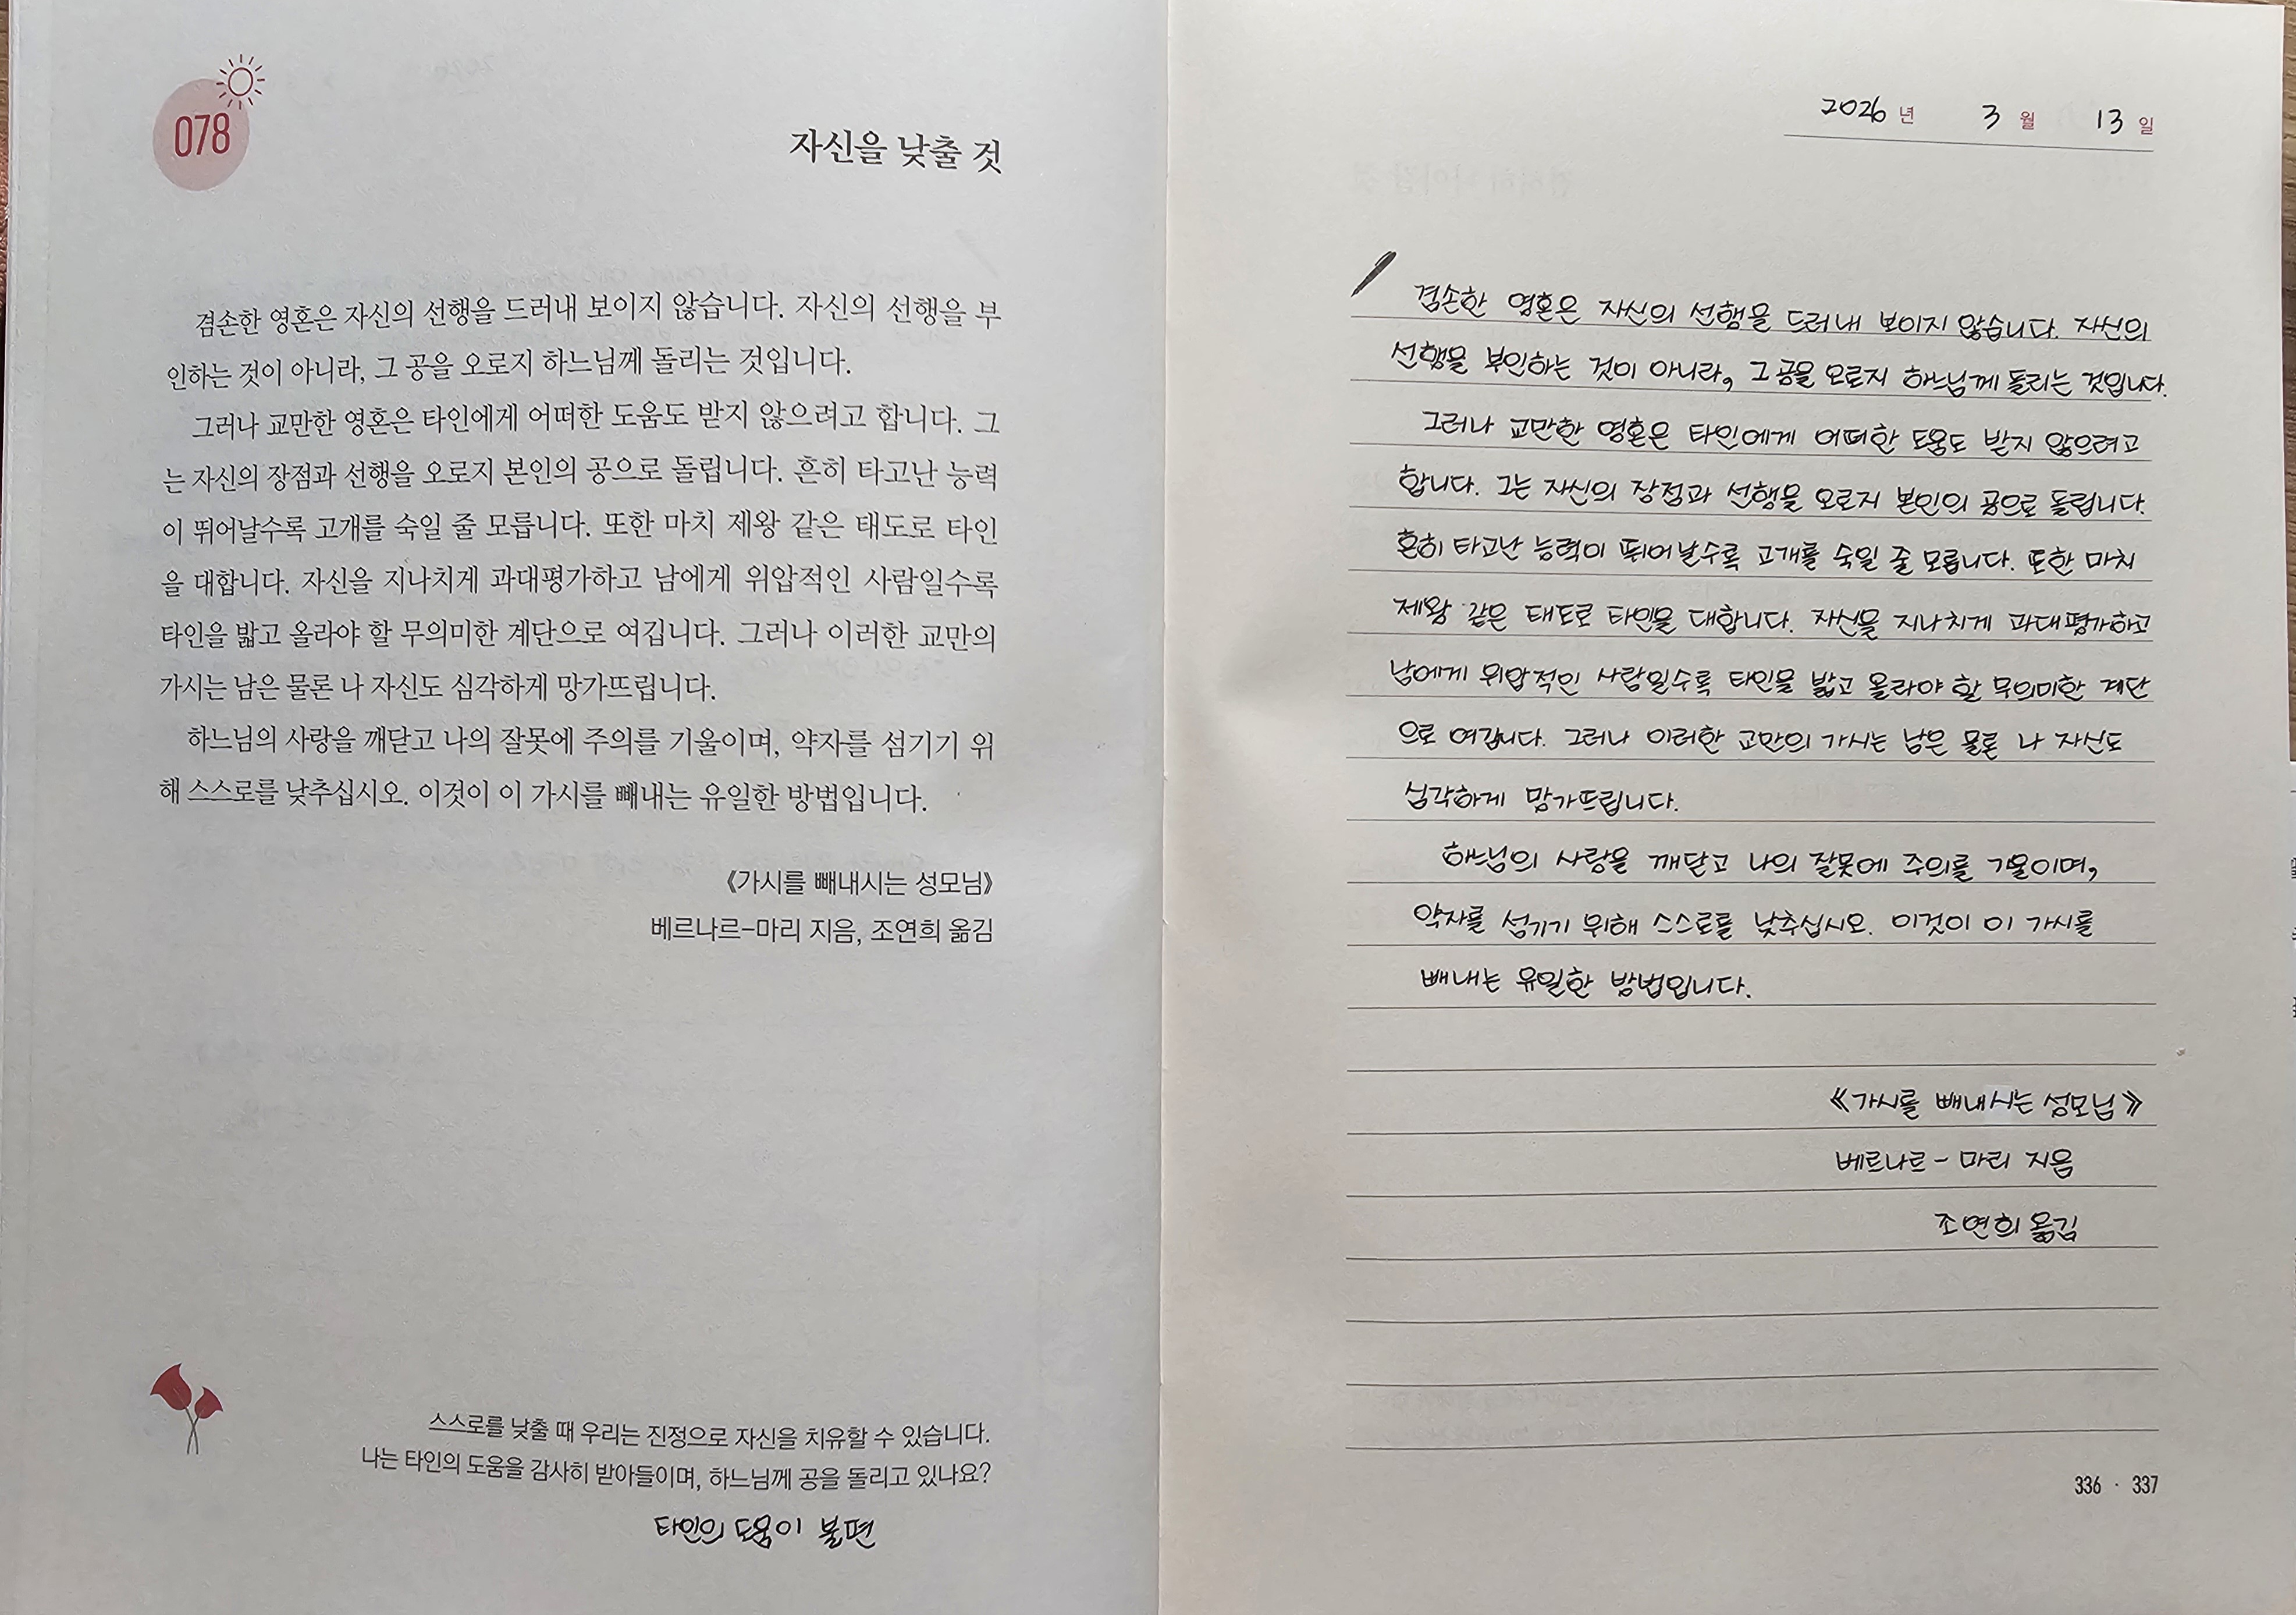 078
자신을 낮출 것
겸손한 영혼은 자신의 선행을 드러내 보이지 않습니다. 자신의 선행을 부
인하는 것이 아니라, 그 공을 오로지 하느님께 돌리는 것입니다.
그러나 교만한 영혼은 타인에게 어떠한 도움도 받지 않으려고 합니다. 그
는 자신의 장점과 선행을 오로지 본인의 공으로 돌립니다. 흔히 타고난 능력
이 뛰어날수록 고개를 숙일 줄 모릅니다. 또한 마치 제왕 같은 태도로 타인
을 대합니다. 자신을 지나치게 과대평가하고 남에게 위압적인 사람일수록
타인을 밟고 올라야 할 무의미한 계단으로 여깁니다. 그러나 이러한 교만의
가시는 남은 물론 나 자신도 심각하게 망가뜨립니다.
하느님의 사랑을 깨닫고 나의 잘못에 주의를 기울이며, 약자를 섬기기 위
해 스스로를 낮추십시오. 이것이 이 가시를 빼내는 유일한 방법입니다.
《가시를 빼내시는 성모님》
베르나르-마리 지음, 조연희 옮김
스스로를 낮출 때 우리는 진정으로 자신을 치유할 수 있습니다.
나는 타인의 도움을 감사히 받아들이며, 하느님께 공을 돌리고 있나요?
타인의 도움이 불편
2026 년 3 월 13 일
겸손한 영혼은 자신의 선행을 드러내 보이지 않습니다. 자신의
선행을 부인하는 것이 아니라, 그 공을 오로지 하느님께 돌리는 것입니다.
그러나 교만한 영혼은 타인에게 어떠한 도움도 받지 않으려고
합니다. 그는 자신의 장점과 선행을 오로지 본인의 공으로 돌립니다.
흔히 타고난 능력이 뛰어날수록 고개를 숙일 줄 모릅니다. 또한 마치
제왕 같은 태도로 타인을 대합니다. 자신을 지나치게 과대평가하고
남에게 위압적인 사람일수록 타인을 밟고 올라야 할 무의미한 계단
으로 여깁니다. 그러나 이러한 교만의 가시는 남은 물론 나 자신도
심각하게 망가뜨립니다.
하느님의 사랑을 깨닫고 나의 잘못에 주의를 기울이며,
약자를 섬기기 위해 스스로를 낮추십시오. 이것이 이 가시를
빼내는 유일한 방법입니다.
《가시를 빼내시는 성모님》
베르나르-마리 지음
조연희 옮김
336 · 337